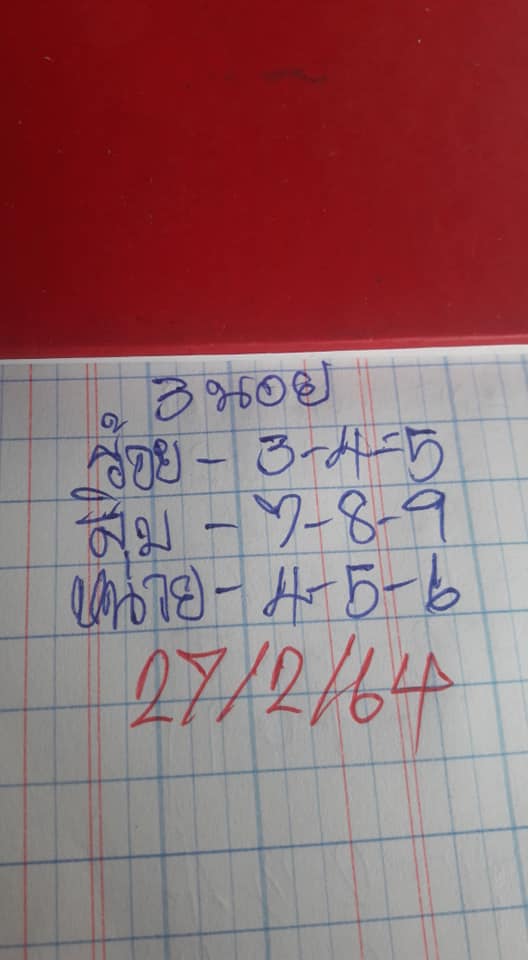 3 นอย
ร้อย - 3-4-5
สิบ - 7-8-9
หน่วย - 4-5-6
27/2/64